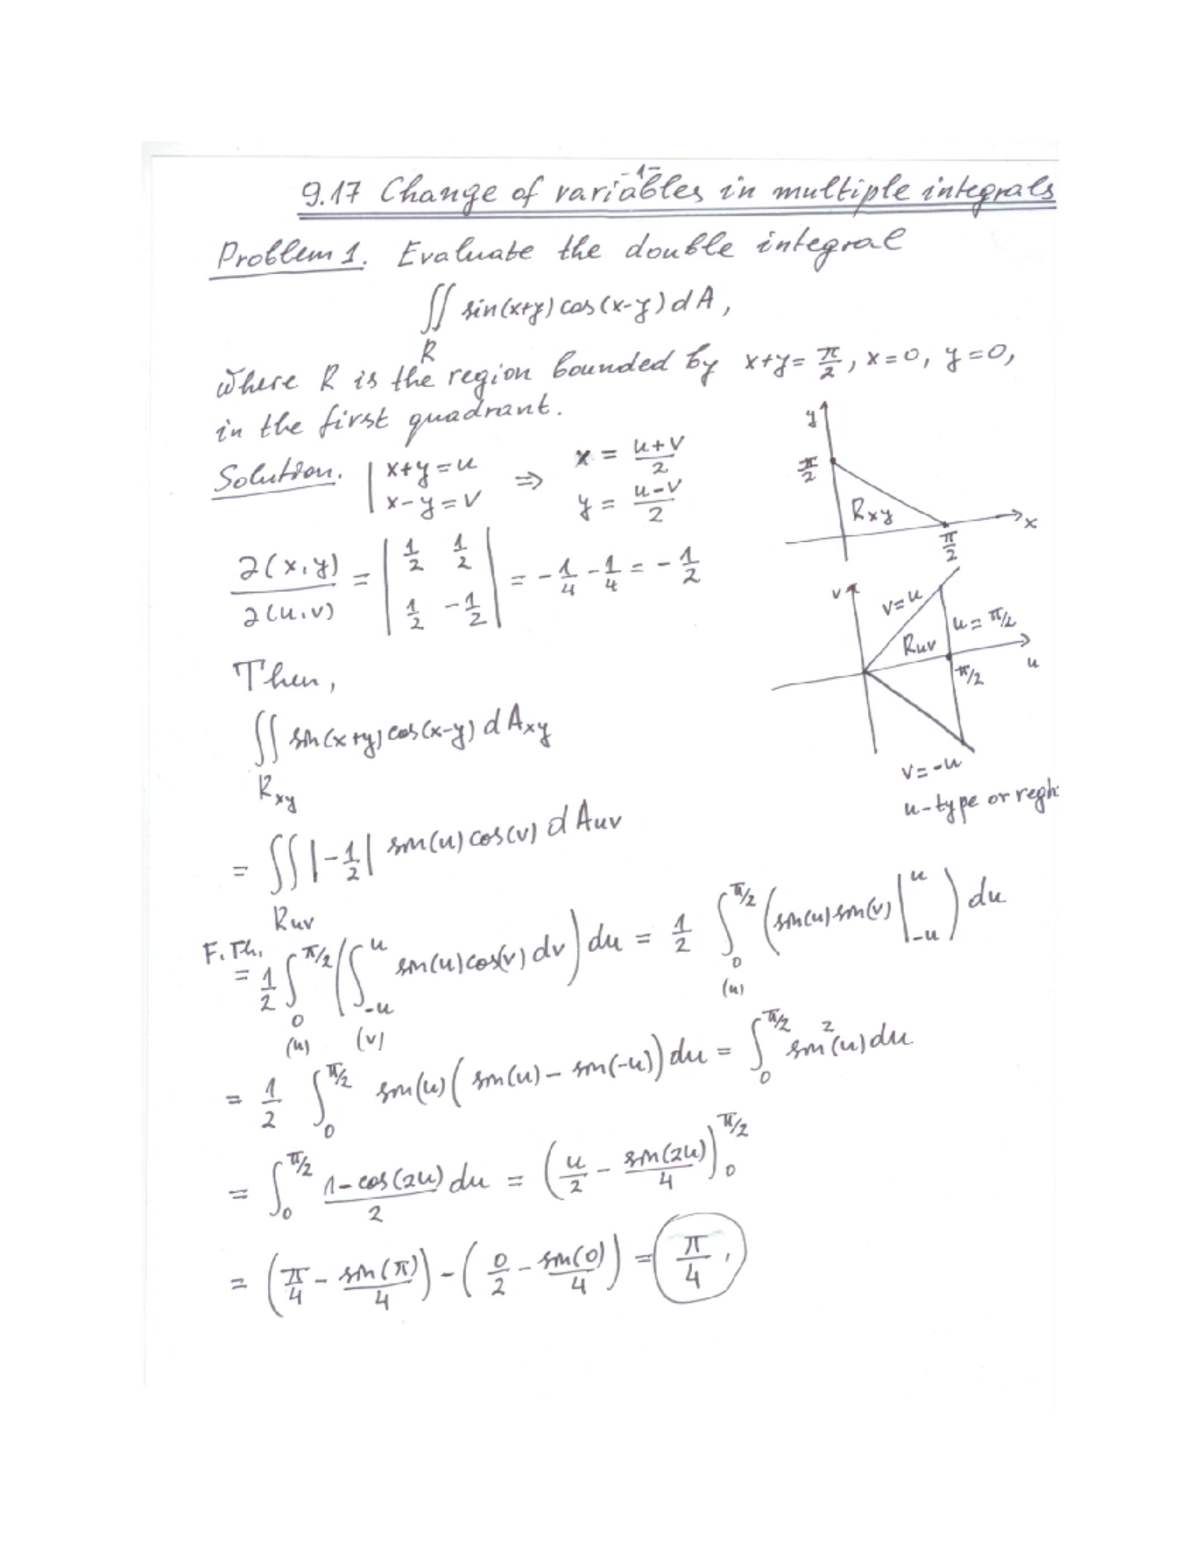 -1-
9.17 Change of variables in multiple integrals
Problem 1. Evaluate the double integral
∬_R sin(x+y) cos(x-y) dA,
where R is the region bounded by x+y = π/2, x=0, y=0,
in the first quadrant.
Solution. | x+y=u ⇒ x = (u+v)/2
| x-y=v y = (u-v)/2
y
π/2
Rxy
x
π/2
∂(x,y)/∂(u,v) = | 1/2 1/2 | = -1/4 - 1/4 = -1/2
| 1/2 -1/2 |
v
v=u
u=π/2
Ruv
π/2
u
v=-u
u-type or regi
Then,
∬_Rxy sin(x+y) cos(x-y) dAxy
= ∬_Ruv |-1/2| sin(u) cos(v) dAuv
F.Th.
= 1/2 ∫_0^{π/2} ( ∫_{-u}^{u} sin(u)cos(v) dv ) du = 1/2 ∫_0^{π/2} ( sin(u) sin(v) |_{-u}^{u} ) du
(u) (v) (u)
= 1/2 ∫_0^{π/2} sin(u) ( sin(u) - sin(-u) ) du = ∫_0^{π/2} sin²(u) du
= ∫_0^{π/2} (1-cos(2u))/2 du = ( u/2 - sin(2u)/4 )_0^{π/2}
= ( π/4 - sin(π)/4 ) - ( 0/2 - sin(0)/4 ) = π/4.